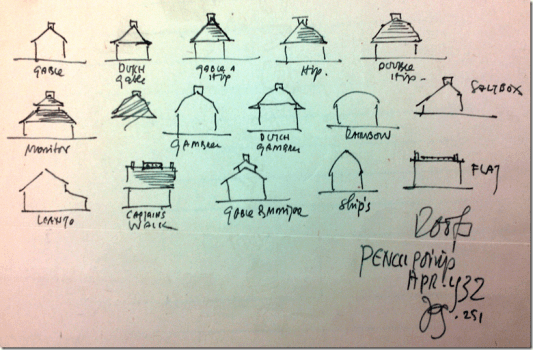 GABLE
DUTCH
GABLE
GABLE &
HIP
HIP.
DOUBLE
HIP -
MONITOR
GAMBREL
DUTCH
GAMBREL
RAINBOW
SALTBOX
LEANTO
CAPTAINS
WALK
GABLE & MONITOR
SHIP'S
FLAT
Roofs
PENCIL POINTS
APR. 432
pg. 251